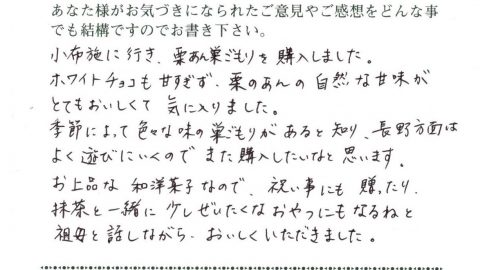 あなた様がお気づきになられたご意見やご感想をどんな事
でも結構ですのでお書き下さい。
小布施に行き、栗あん巣ごもりを購入しました。
ホワイトチョコも甘すぎず、栗のあんの自然な甘味が
とてもおいしくて気に入りました。
季節によって色々な味の巣ごもりがあると知り、長野方面は
よく遊びにいくのでまた購入したいなと思います。
お上品な和洋菓子なので、祝い事にも贈ったり、
抹茶と一緒に少しぜいたくなおやつにもなるねと
祖母と話しながら、おいしくいただきました。